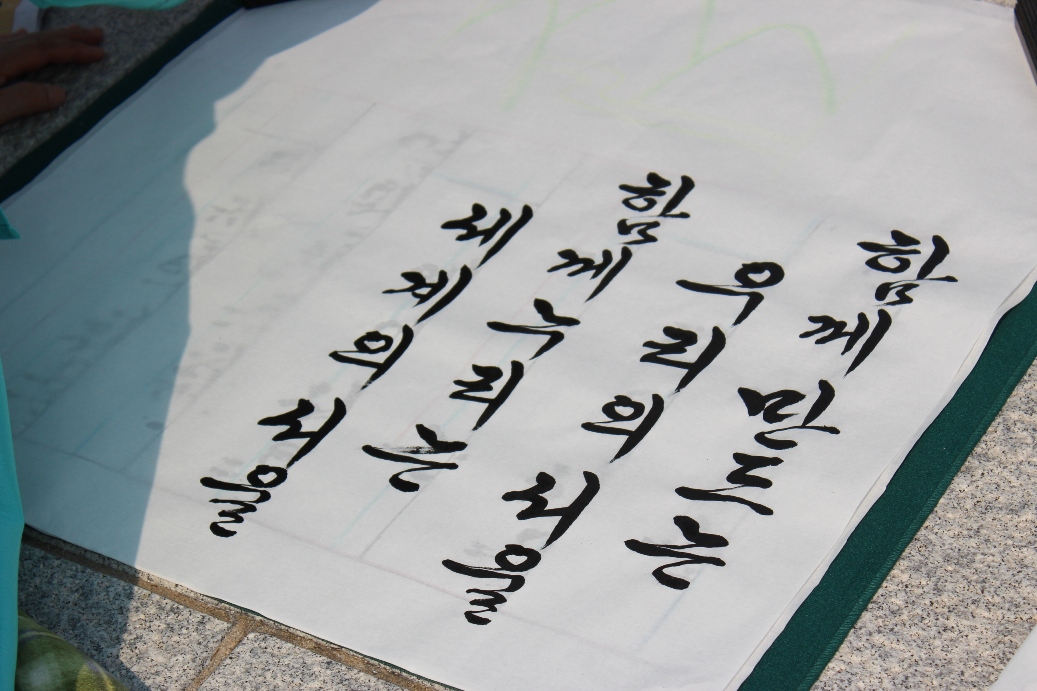 함께 만드는
우리의 서울
함께 누리는
세계의 서울